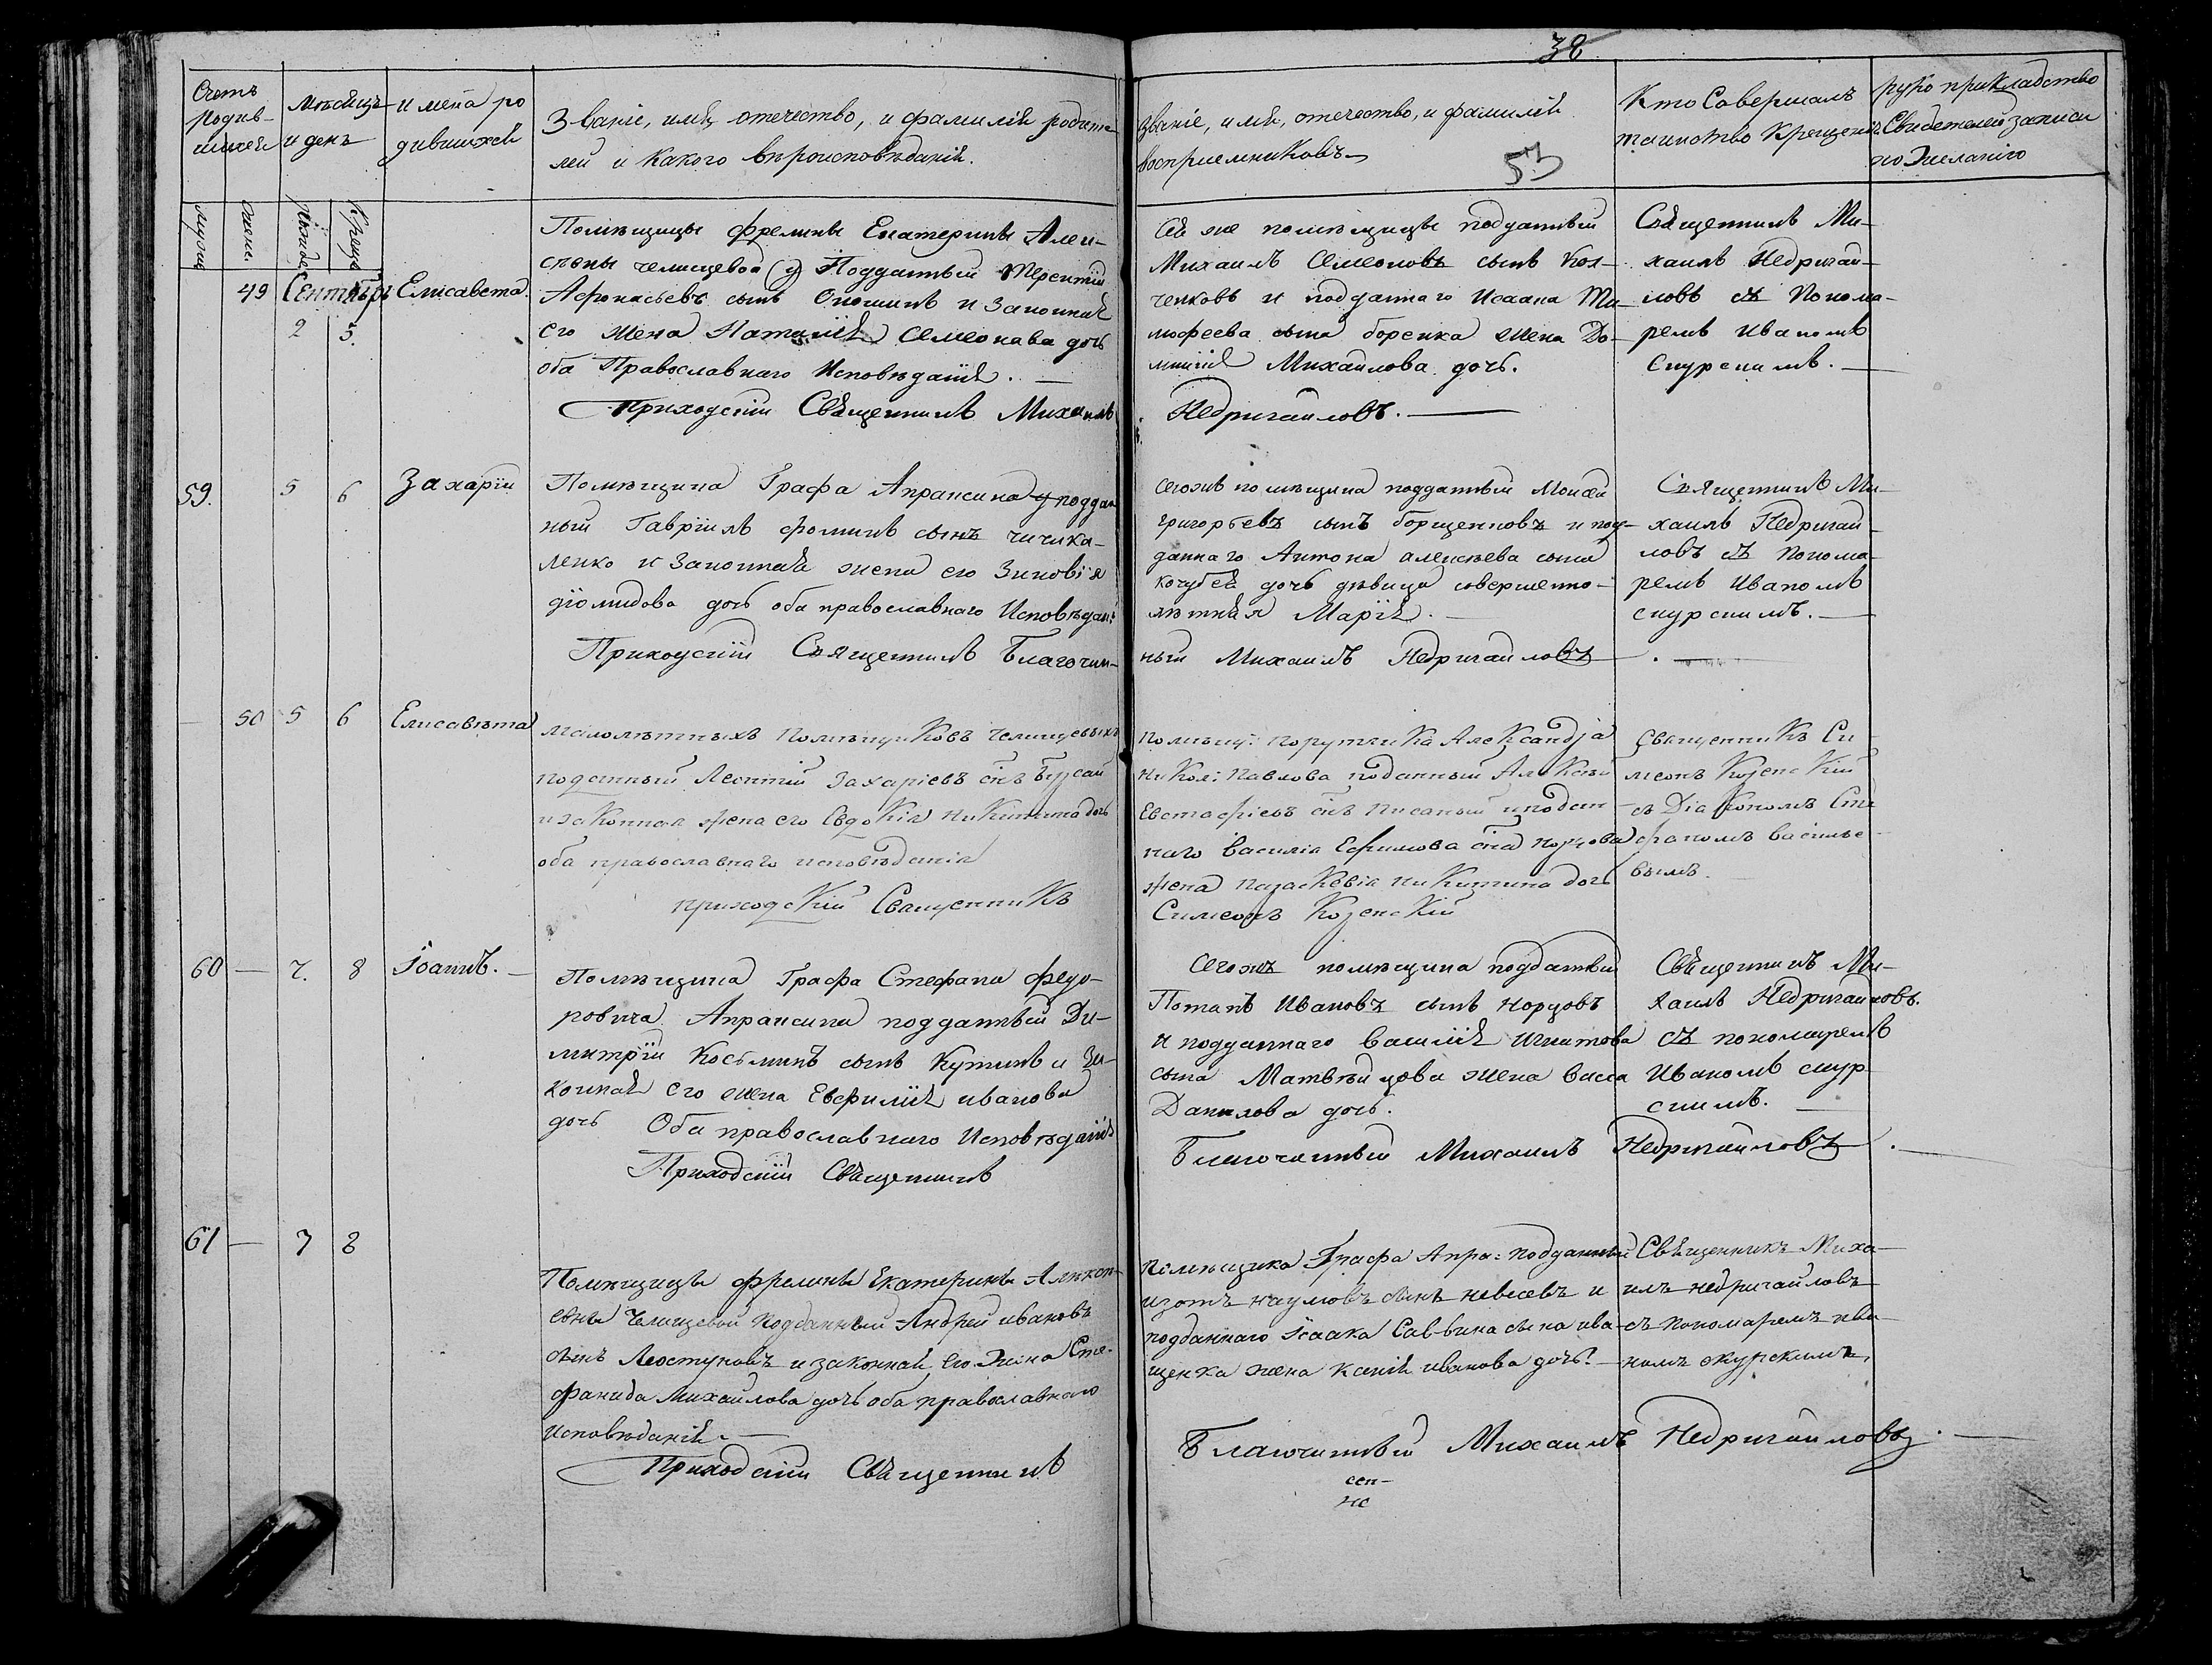 38
53
Счетъ родив-шихся
Мѣсяцъ и день
имена ро
дившихся
Званіе, имя, отечество, и фамилія родите
лей и какого вѣроисповѣданія.
Званіе, имя, отечество, и фамилія
воспріемниковъ
Кто Совершалъ
таинство Крещенія
рукоприкладство
Свидетелей записи
по Желанію
49 Сентябрь 2 5.
Елисавета.
Помѣщицы фрелины Екатерины Алек-
сѣвны челищевой Подданный Терентій
Афонасьевъ сынъ и Законная
его жена Наталія Семеонава дочь
оба Православнаго Исповѣданія.
Приходскій Священникъ Михаилъ
Сей же помѣщицы подданный
Михаилъ Семеоновъ сынъ Кол-
ченковъ и подданнаго Исаака Ти-
мофеева сына боренка жена До-
мникія Михайлова дочь.
Недригайловъ.
Священникъ Ми-
хаилъ Недригай-
ловъ съ Понома-
ремъ Иваномъ
Скурскимъ.
59. 5 6
Захарій
Помѣщика Графа Апраксина поддан
ный Гавріилъ фоминъ сынъ чичика-
ленко и Законная жена его Зиновія
діомидова дочь оба православнаго Исповѣдані:
Приходскій Священникъ Благочин-
Сегожъ помѣщика подданный Моисей
григорьевъ сынъ борщенковъ и под-
даннаго Антона алексѣева сына
кочубея дочь дѣвица совершенно-
лѣтняя Марія.
ный Михаилъ Недригайловъ
Священникъ Ми-
хаилъ Недригай-
ловъ съ Понома-
ремъ Иваномъ
скурскимъ.
50 5 6
Елисавѣта
малолѣтныхъ помѣщиковъ Челищевыхъ
поданный Леонтій Захаріевъ снъ
и законная жена его Евдокія Никитина дочь
оба православнаго исповѣданія
приходскій Священникъ
помѣщ: порутчика Александра
Никол: Павлова поданный Алексѣй
Евстафіевъ снъ Писаный и подан-
наго Василія Ефимова сна
жена Параскѣвія Никитина дочь
Симеонъ Козенскій
Священникъ Си-
меонъ Козенскій
съ Діакономъ Сте
фаномъ Василье-
вымъ.
60 — 7. 8
Іоаннъ.
Помѣщика Графа Стефана федо-
ровича Апраксина подданный Ди-
митрій Косьминъ сынъ Кутинъ и За-
конная его жена Евфимія иванова
дочь Оба православнаго Исповѣданія
Приходскій Священникъ
Сегожъ помѣщика подданный
Потапъ Ивановъ сынъ
и подданнаго Василія Игнатова
сына жена васса
Данилова дочь.
Благочинный Михаилъ Недригайловъ
Священникъ Ми-
хаилъ Недригайловъ.
съ пономаремъ
Иваномъ скур
скимъ.
61 — 7 8
Помѣщицы фрелины Екатерины Алѣксѣ-
евны Челищевой Подданный Андрей ивановъ
сынъ и законная его Жена Сте-
фанида Михайлова дочь оба православнаго
исповѣданія.
Приходскій Священникъ
помѣщика Графа Апра: подданный
изотъ наумовъ сынъ и
подданнаго Ісаака Саввина сына ива-
щенка жена иванова дочь.
Благочинный Михаилъ Недригайловъ.
Священникъ Миха-
илъ недригайловъ
съ пономаремъ ива
номъ скурскимъ.